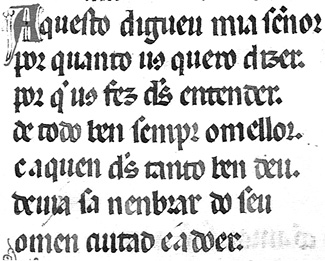 Aquesto digueu mia señor
por quanto uꝯ quero dizer.
por q̇ uꝯ fez d̄s entender.
de todo ben sempr omellor.
e aquen d̄s tanto ben deu.
deuia sa nenbrar do seu
omen cuitad e a doer.